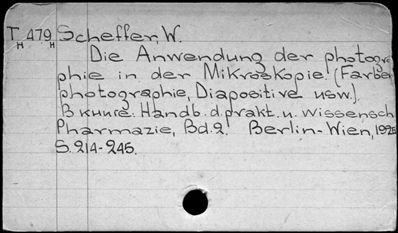 T 479 Scheffer, W.
H H
Die Anwendung der photogra-
phie in der Mikroskopie. (Farben
photographie, Diapositive usw.).
В книге: Handb. d. prakt. u. wissensch.
Pharmazie, Bd. 2. Berlin-Wien, 1925
S. 214-245.